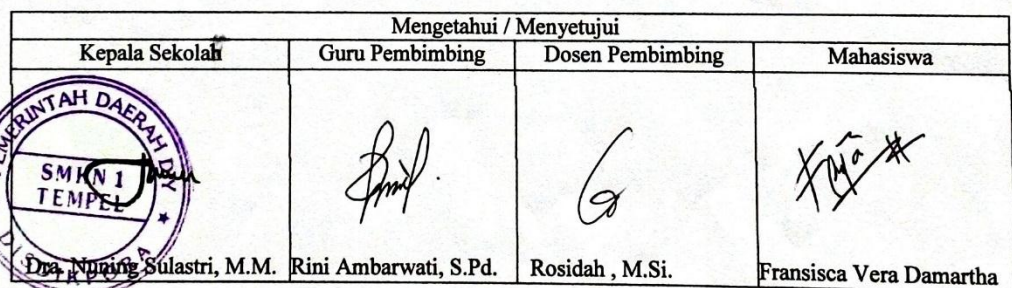 Mengetahui / Menyetujui
Kepala Sekolah Guru Pembimbing Dosen Pembimbing Mahasiswa
AH DAERAH DIY
SMKN 1
TEMPEL
Dra. Nuning Sulastri, M.M. Rini Ambarwati, S.Pd. Rosidah , M.Si. Fransisca Vera Damartha